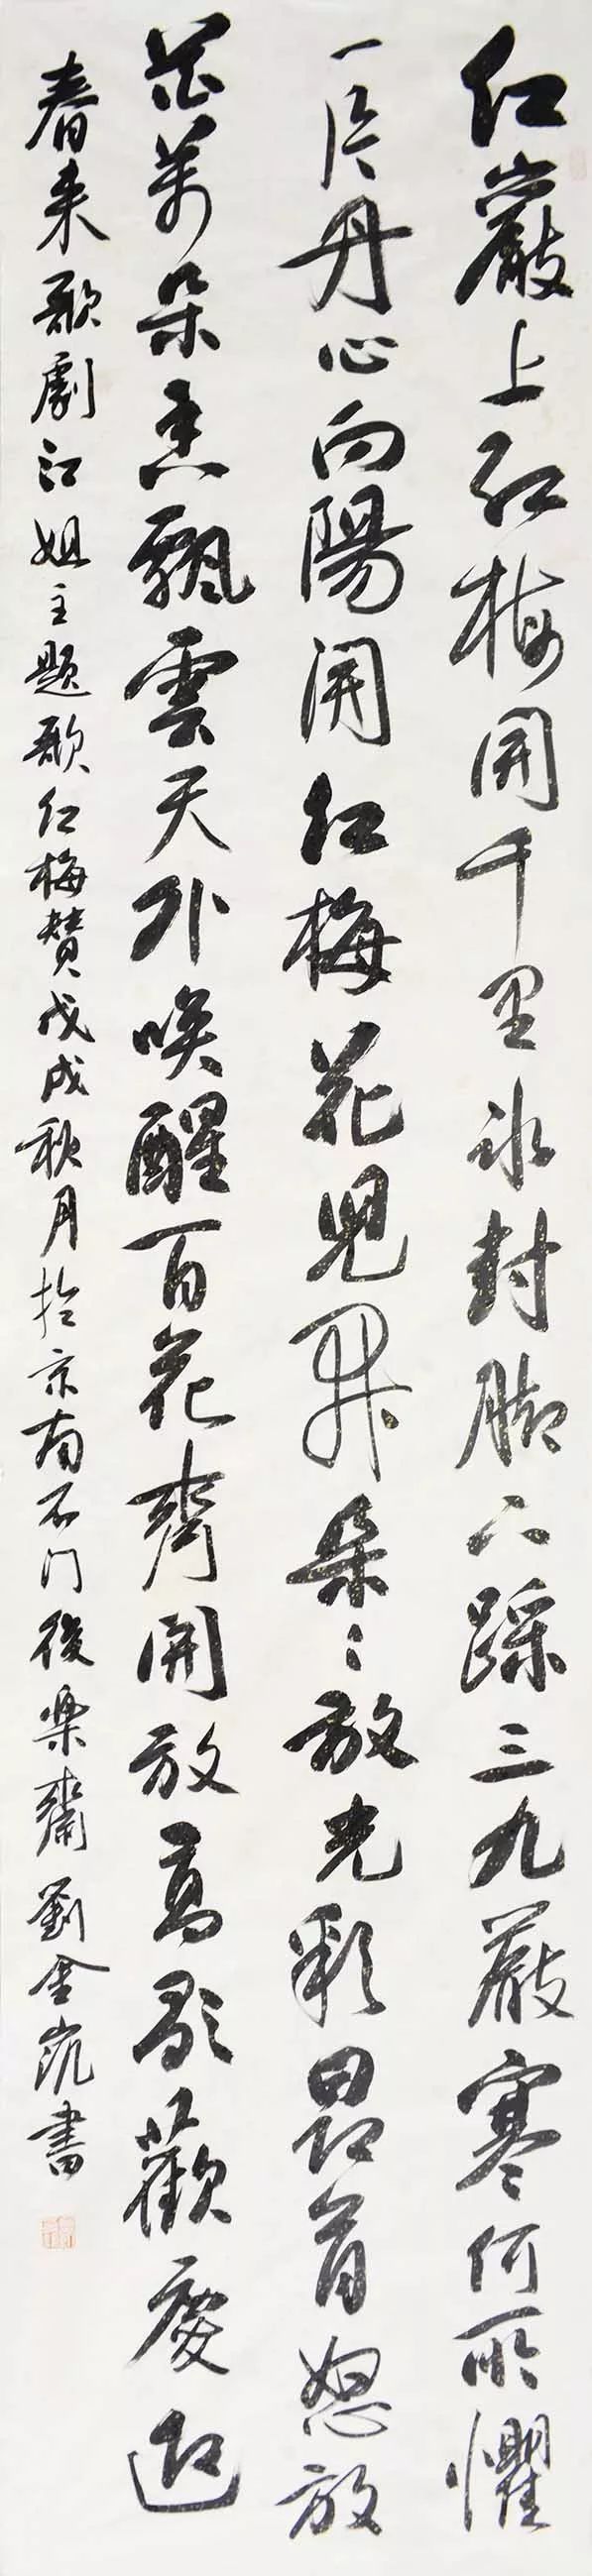 红巖上红梅開千里冰封脚下踩三九嚴寒何所懼
一片丹心向陽開红梅花兒開朵々放光彩昂首怒放
花萬朵香飄雲天外喚醒百花齊開放高歌歡慶迎
春来歌劇江姐主题歌红梅赞戊戌秋月於京南石门後樂齋劉金凯書